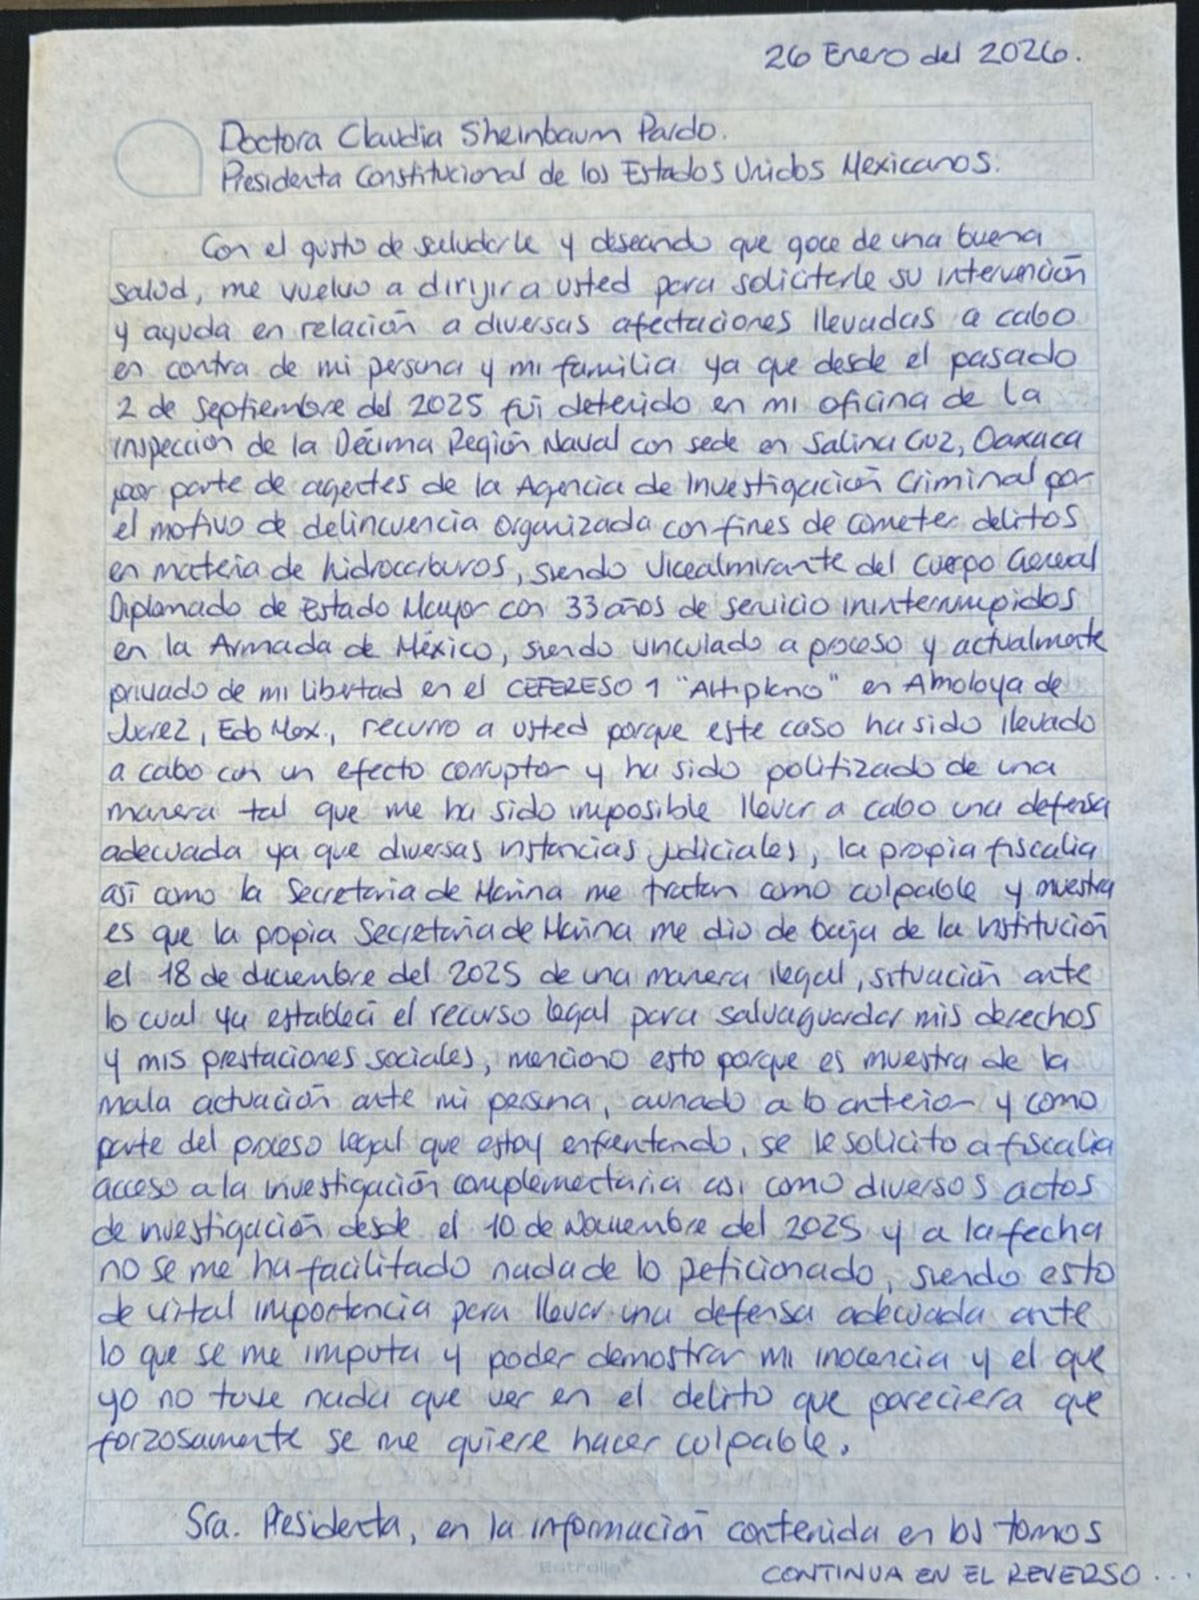 26 Enero del 2026.
Doctora Claudia Sheinbaum Pardo.
Presidenta Constitucional de los Estados Unidos Mexicanos.
Con el gusto de saludarle y deseando que goce de una buena
salud, me vuelvo a dirijir a usted para solicitarle su intervención
y ayuda en relación a diversas afectaciones llevadas a cabo
en contra de mi persona y mi familia ya que desde el pasado
2 de septiembre del 2025 fui detenido en mi oficina de la
inspección de la Décima Región Naval con sede en Salina Cruz, Oaxaca
por parte de agentes de la Agencia de Investigación Criminal por
el motivo de delincuencia organizada con fines de cometer delitos
en materia de hidrocarburos, siendo Vicealmirante del Cuerpo General
Diplomado de Estado Mayor con 33 años de servicio ininterrumpidos
en la Armada de México, siendo vinculado a proceso y actualmente
privado de mi libertad en el CEFERESO 1 "Altiplano" en Almoloya de
Juárez, Edo Mex., recurro a usted porque este caso ha sido llevado
a cabo con un efecto corruptor y ha sido politizado de una
manera tal que me ha sido imposible llevar a cabo una defensa
adecuada ya que diversas instancias judiciales, la propia fiscalia
así como la Secretaria de Marina me tratan como culpable y muestra
es que la propia Secretaría de Marina me dio de baja de la institución
el 18 de diciembre del 2025 de una manera ilegal, situación ante
lo cual ya establecí el recurso legal para salvaguardar mis derechos
y mis prestaciones sociales, menciono esto porque es muestra de la
mala actuación ante mi persona, aunado a lo anterior y como
parte del proceso legal que estoy enfrentando, se le solicito a fiscalia
acceso a la investigación complementaria asi como diversos actos
de investigación desde el 10 de Noviembre del 2025 y a la fecha
no se me ha facilitado nada de lo peticionado, siendo esto
de vital importancia para llevar una defensa adecuada ante
lo que se me imputa y poder demostrar mi inocencia y el que
yo no tuve nada que ver en el delito que pareciera que
forzosamente se me quiere hacer culpable.
Sra. Presidenta, en la información contenida en los tomos
CONTINUA EN EL REVERSO...